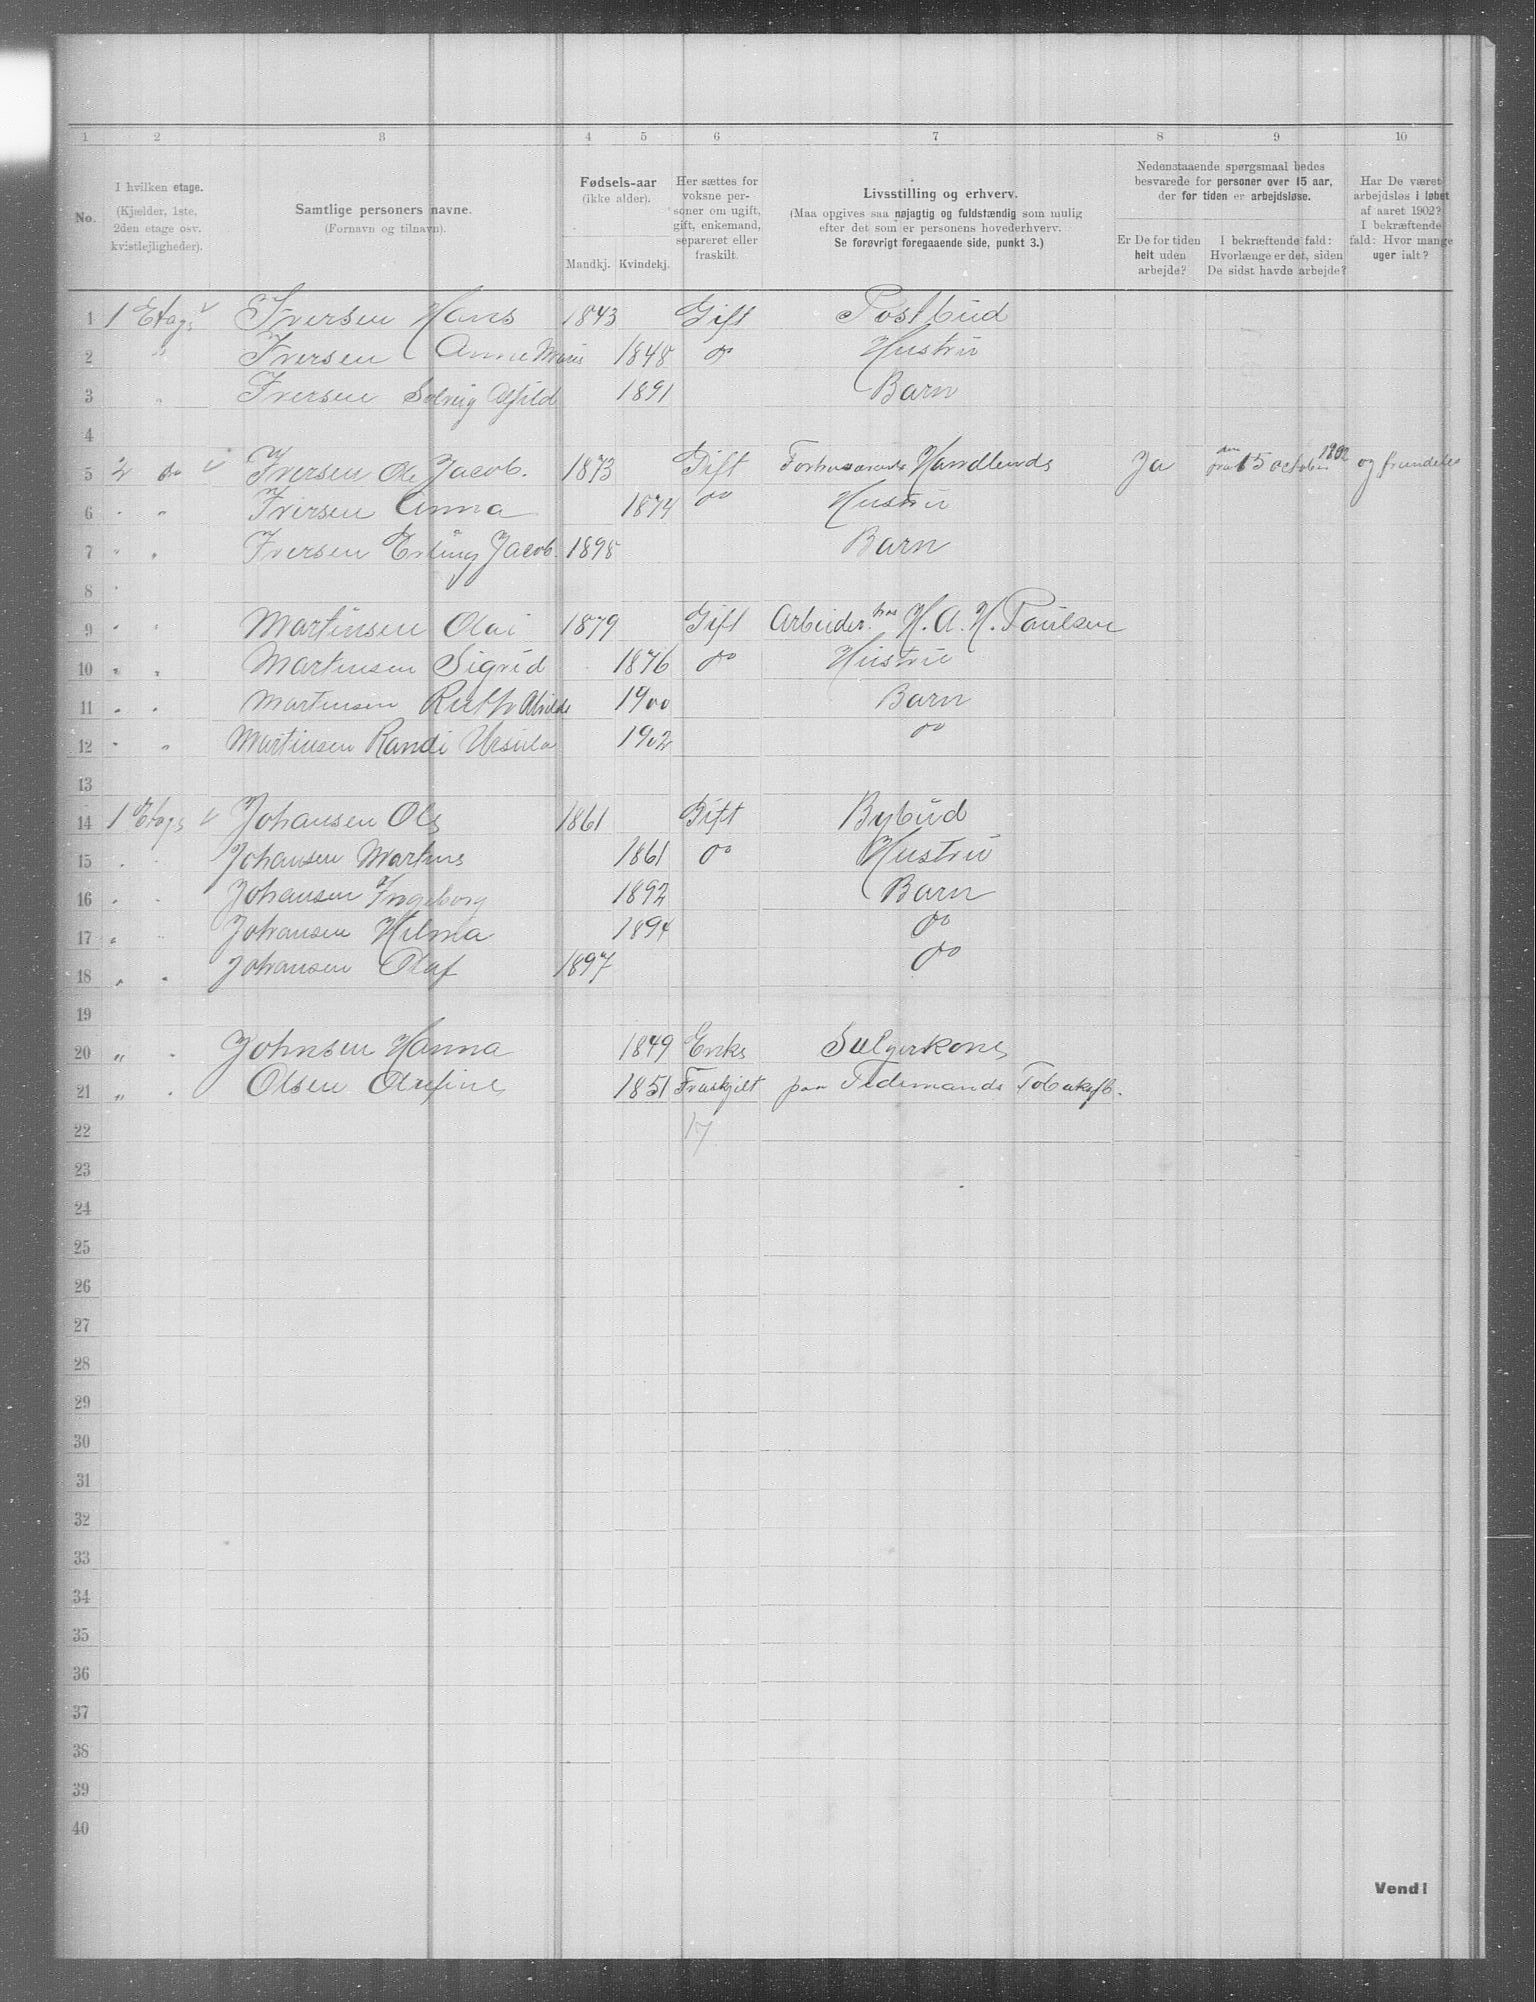 1 2 3 4 5 6 7 8 9 10
No.
I hvilken etage.
(Kjælder, 1ste, 2den etage osv. kvistlejligheder).
Samtlige personers navne.
(Fornavn og tilnavn).
Fødsels-aar
(ikke alder).
Mandkj. Kvindekj.
Her sættes for voksne personer om ugift, gift, enkemand, separeret eller fraskilt.
Livsstilling og erhverv.
(Maa opgives saa nøjagtig og fuldstændig som mulig
efter det som er personens hovederhverv.
Se forøvrigt foregaaende side, punkt 3.)
Nedenstaaende spørgsmaal bedes
besvarede for personer over 15 aar,
der for tiden er arbejdsløse.
Er De for tiden helt uden arbejde?
I bekræftende fald: Hvorlænge er det, siden De sidst havde arbejde?
Har De været arbejdsløs i løbet af aaret 1902? I bekræftende fald: Hvor mange uger ialt?
1 1 Etage Iversen Hans 1843 Gift Postbud
2 " Iversen Anne Marie 1848 do Hustru
3 " Iversen Solveig Alfild 1891 Barn
4
5 2 do Iversen Ole Jacob. 1873 Gift Forhuværende Handlende Ja den fra 15 october 1902 og fremdeles
6 " " Iversen Anna 1874 do Hustru
7 " " Iversen Erling Jacob. 1898 Barn
8 "
9 " " Martinsen Olai 1879 Gift Arbeider hos H. A. H. Paulsen
10 " " Martinsen Sigrid 1876 do Hustru
11 " " Martinsen Ruth Alvilde 1900 Barn
12 " " Martinsen Randi Ursula 1902 do
13
14 1 Etage Johansen Ole 1861 Gift Bybud
15 " " Johansen Martine 1861 do Hustru
16 " " Johansen Ingeborg 1892 Barn
17 " " Johansen Hilma 1894 do
18 " " Johansen Olaf 1897 do
19
20 " " Johnsen Hanna 1849 Enke Sælgerkone
21 " " Olsen Olefine 1851 Fraskjilt paa Tidemands Tobaksfb.
22 17
23
24
25
26
27
28
29
30
31
32
33
34
35
36
37
38
39
40
Vend!